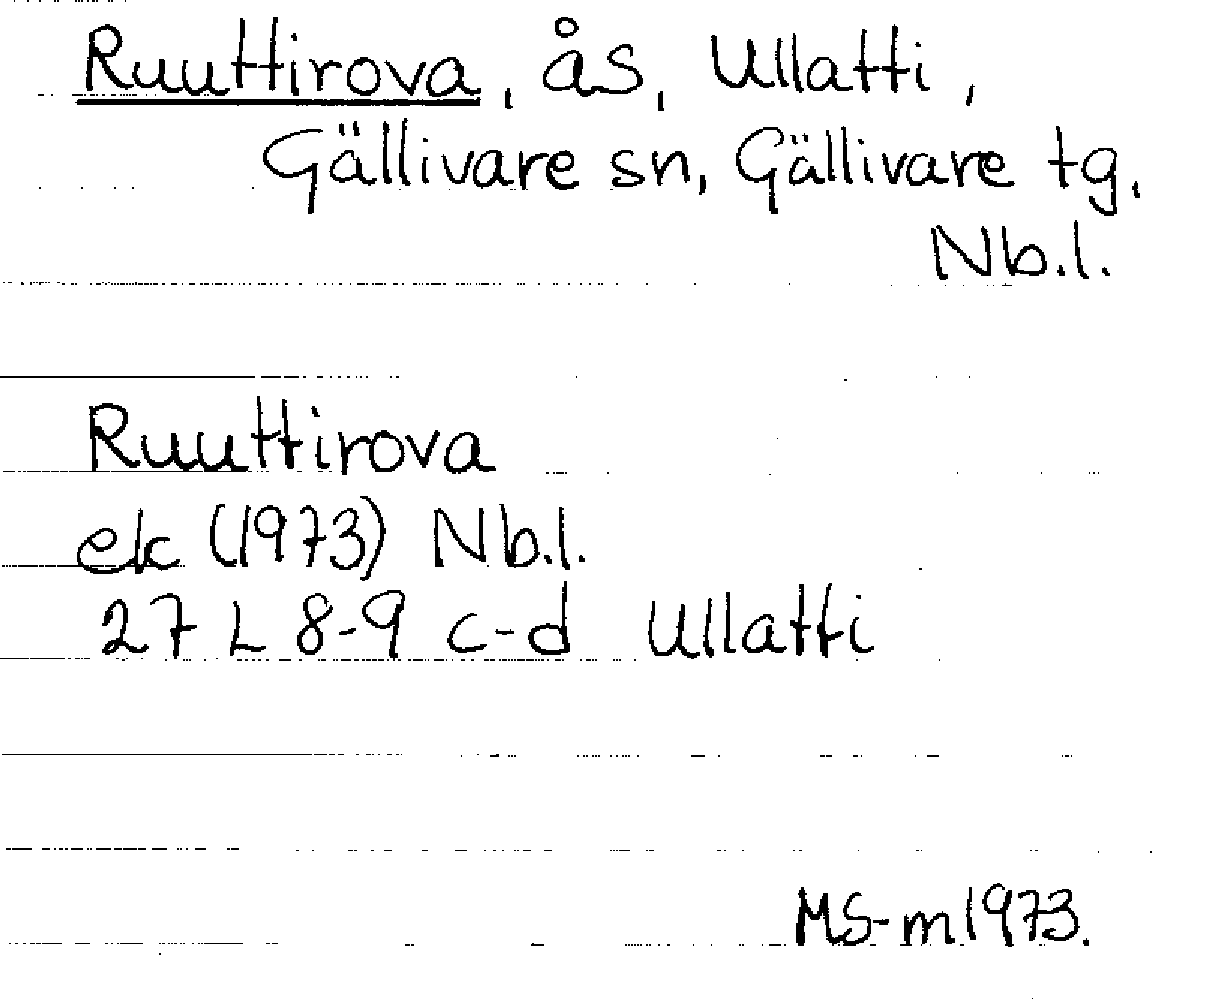 Ruuttirova, ås, Ullatti,
Gällivare sn, Gällivare tg.
Nb.l.
Ruuttirova
ek (1973) Nb.l.
27 L 8-9 c-d Ullatti
MS-m 1973.